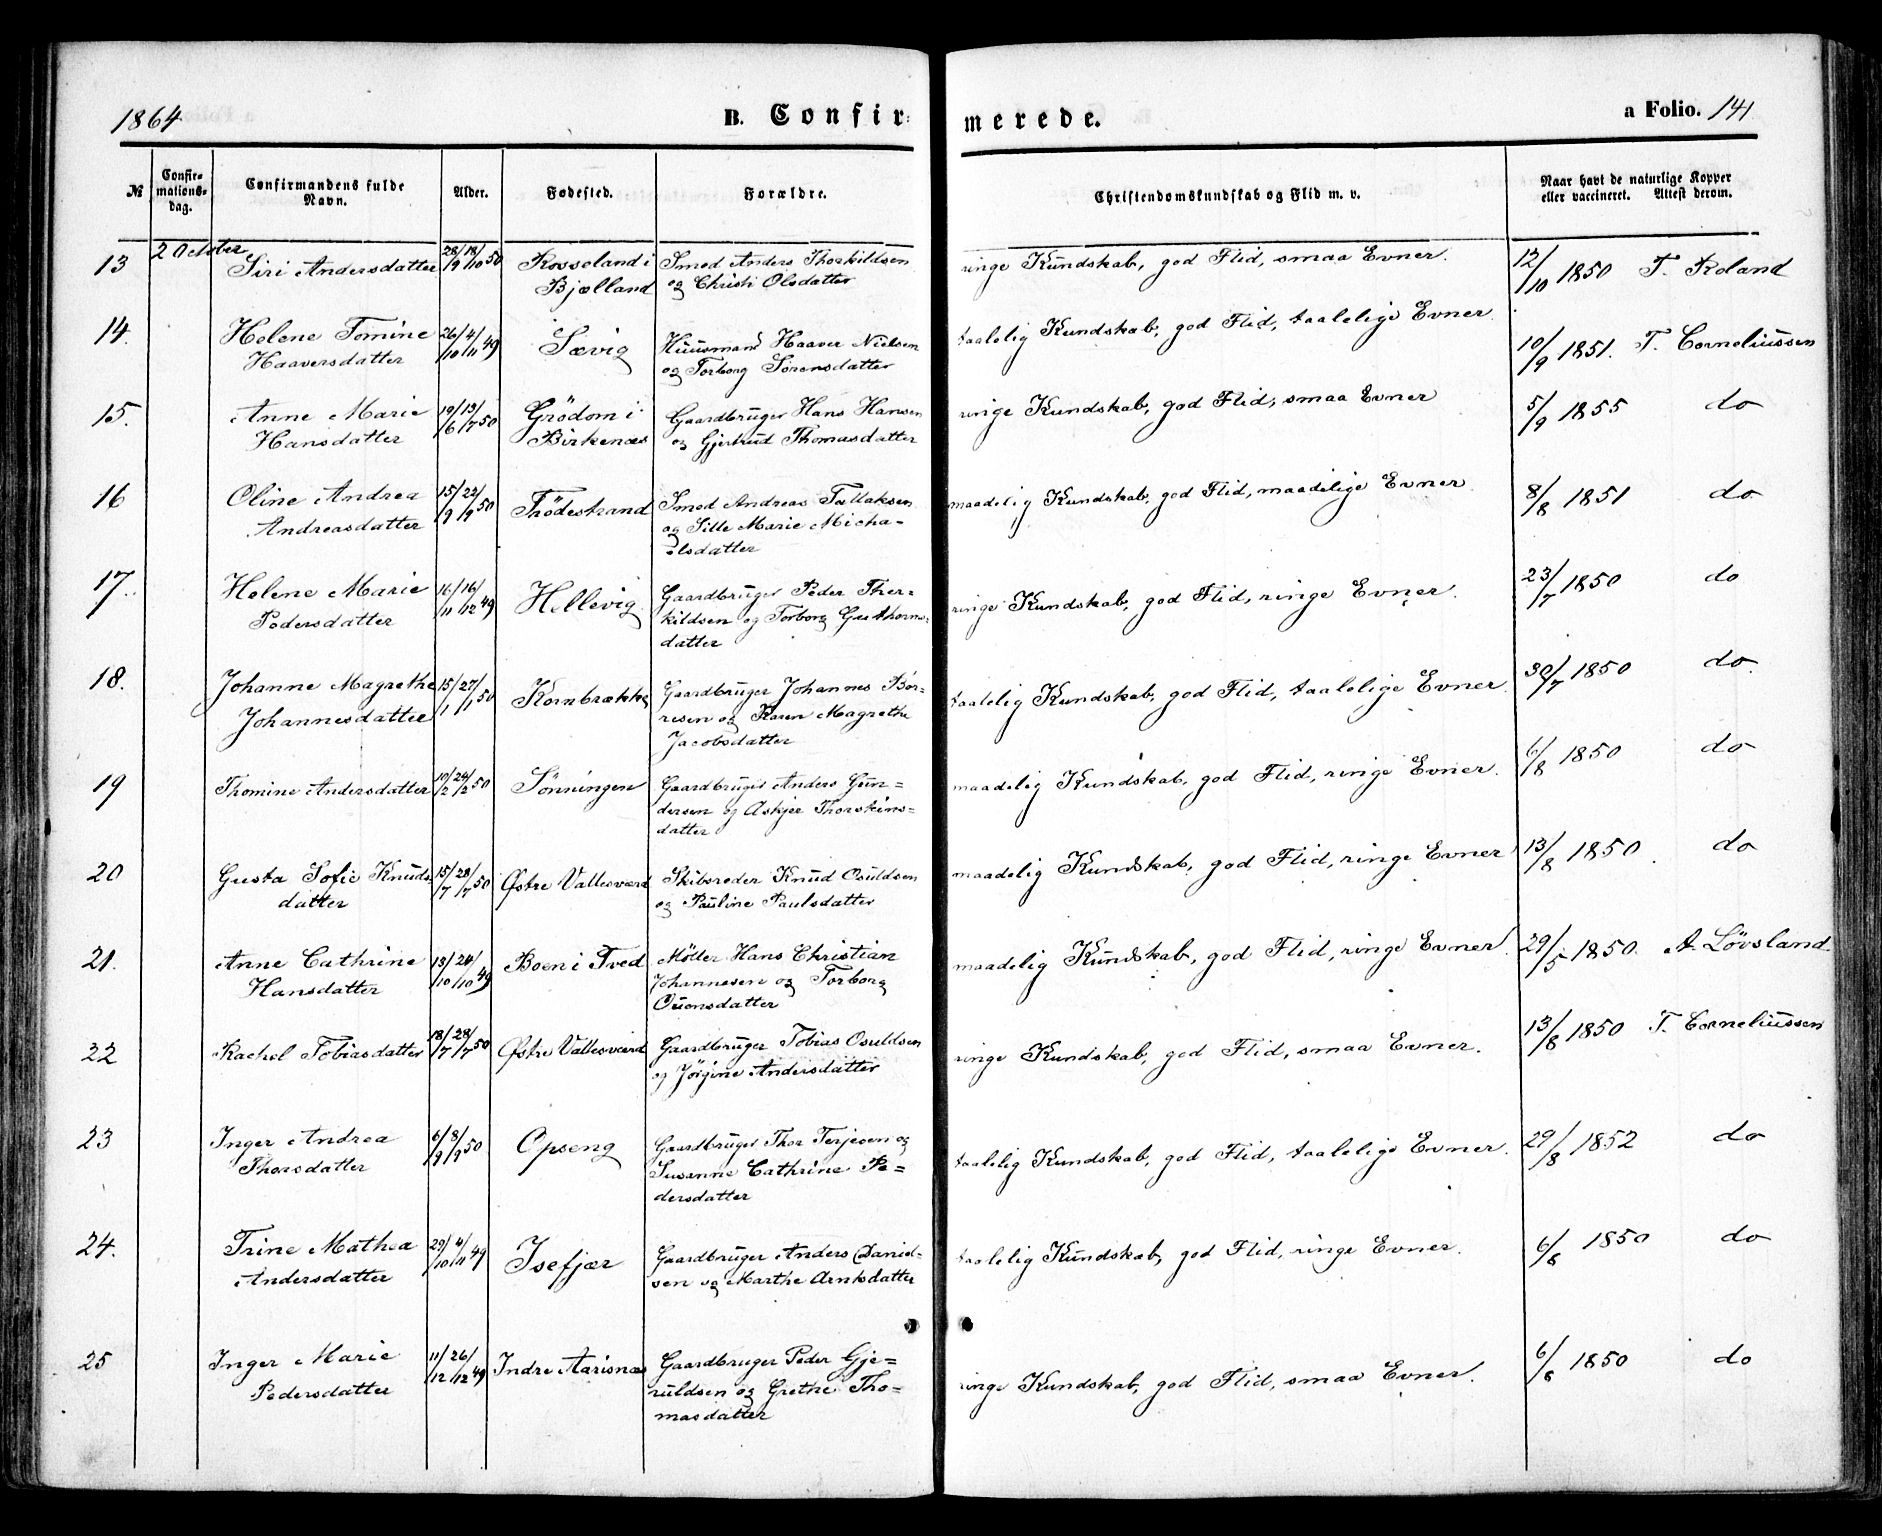 1864
B. Confir-
merede.
a Folio. 141
№
Confir-
mations-
dag.
Confirmandens fulde
Navn.
Alder.
Fødested.
Forældre.
Christendomskundskab og Flid m. v.
Naar havt de naturlige Kopper
eller vaccineret. Attest derom.
13 2 October Siri Andersdatter 28/9 18/10 50 Rosseland i Smed Anders Thorkildsen ringe Kundskab, god Flid, smaa Evner. 12/10 1850 T. Roland
Bjælland og Christi Olsdatter
14. Helene Tomine 26/10 4/11 49 Sævig Huusmand Haaver Nielsen taalelig Kundskab, god Flid, taalelige Evner. 10/9 1851. T. Corneliussen
Haaversdatter og Torborg Sörensdatter
15. Anne Marie 19/6 13/7 50 Grödom i Gaardbruger Hans Hansen ringe Kundskab, god Flid, smaa Evner 5/9 1855 do
Hansdatter Birkenæs og Gjertrud Thomasdatter
16 Oline Andrea 15/9 22/9 50 Smed Andreas Tellaksen maadelig Kundskab, god Flid, maadelige Evner 8/8 1851 do
Andreasdatter og Sille Marie Micha-
elsdatter
17. Helene Marie 16/11 16/12 49 Hellevig Gaardbruger Peder Ther- ringe Kundskab, god Flid, ringe Evner. 23/7 1850 do
Pedersdatter kildsen og Torborg Guthorms-
datter
18. Johanne Magrethe 15/1 27/1 50 Kornbrække Gaardbruger Johannes Bör- taalelig Kundskab, god Flid, taalelige Evner. 30/7 1850 do
Johannesdatter resen og Karen Magrethe
Jacobsdatter
19 Thomine Andersdatter 10/2 24/2 50 Sönningen Gaardbruger Anders Gun- maadelig Kundskab, god Flid, ringe Evner. 6/8 1850 do
dersen og Askjer Thorskins-
datter
20 Gusta Sofie Knuds 15/7 28/7 50 Østre Vallesværd Skibsreder Knud Osuldsen maadelig Kundskab, god Flid, ringe Evner 13/8 1850. do
datter og Pauline Paulsdatter
21. Anne Cathrine 13/10 24/10 49 Boen i Tved Möller Hans Christian maadelig Kundskab, god Flid, ringe Evner. 29/5 1850. A. Lövsland
Hansdatter Johannesen og Torborg
Ouensdatter
22 Rachel Tobiasdatter 18/7 28/7 50 Østre Vallesværd Gaardbruger Tobias Osuldsen ringe Kundskab, god Flid, smaa Evner. 13/8 1850 T. Corneliussen
og Jörgine Andersdatter
23 Inger Andrea 6/9 8/9 50 Opseng Gaardbruger Thor Terjesen og taalelig Kundskab, god Flid, taalelige Evner. 29/8 1852 do
Thorsdatter Susanne Cathrine Pe-
dersdatter
24. Trine Mathea 29/10 4/11 49 Isefjær Gaardbruger Anders Daniel- taalelig Kundskab, god Flid, ringe Evner. 6/8 1850 do
Andersdatter sen og Marthe Arntsdatter
25 Inger Marie 11/12 26/12 49 Indre Aarisnæs Gaardbruger Peder Gje- ringe Kundskab, god Flid, smaa Evner. 6/8 1850 do
Pedersdatter ruldsen og Grethe Tho-
masdatter